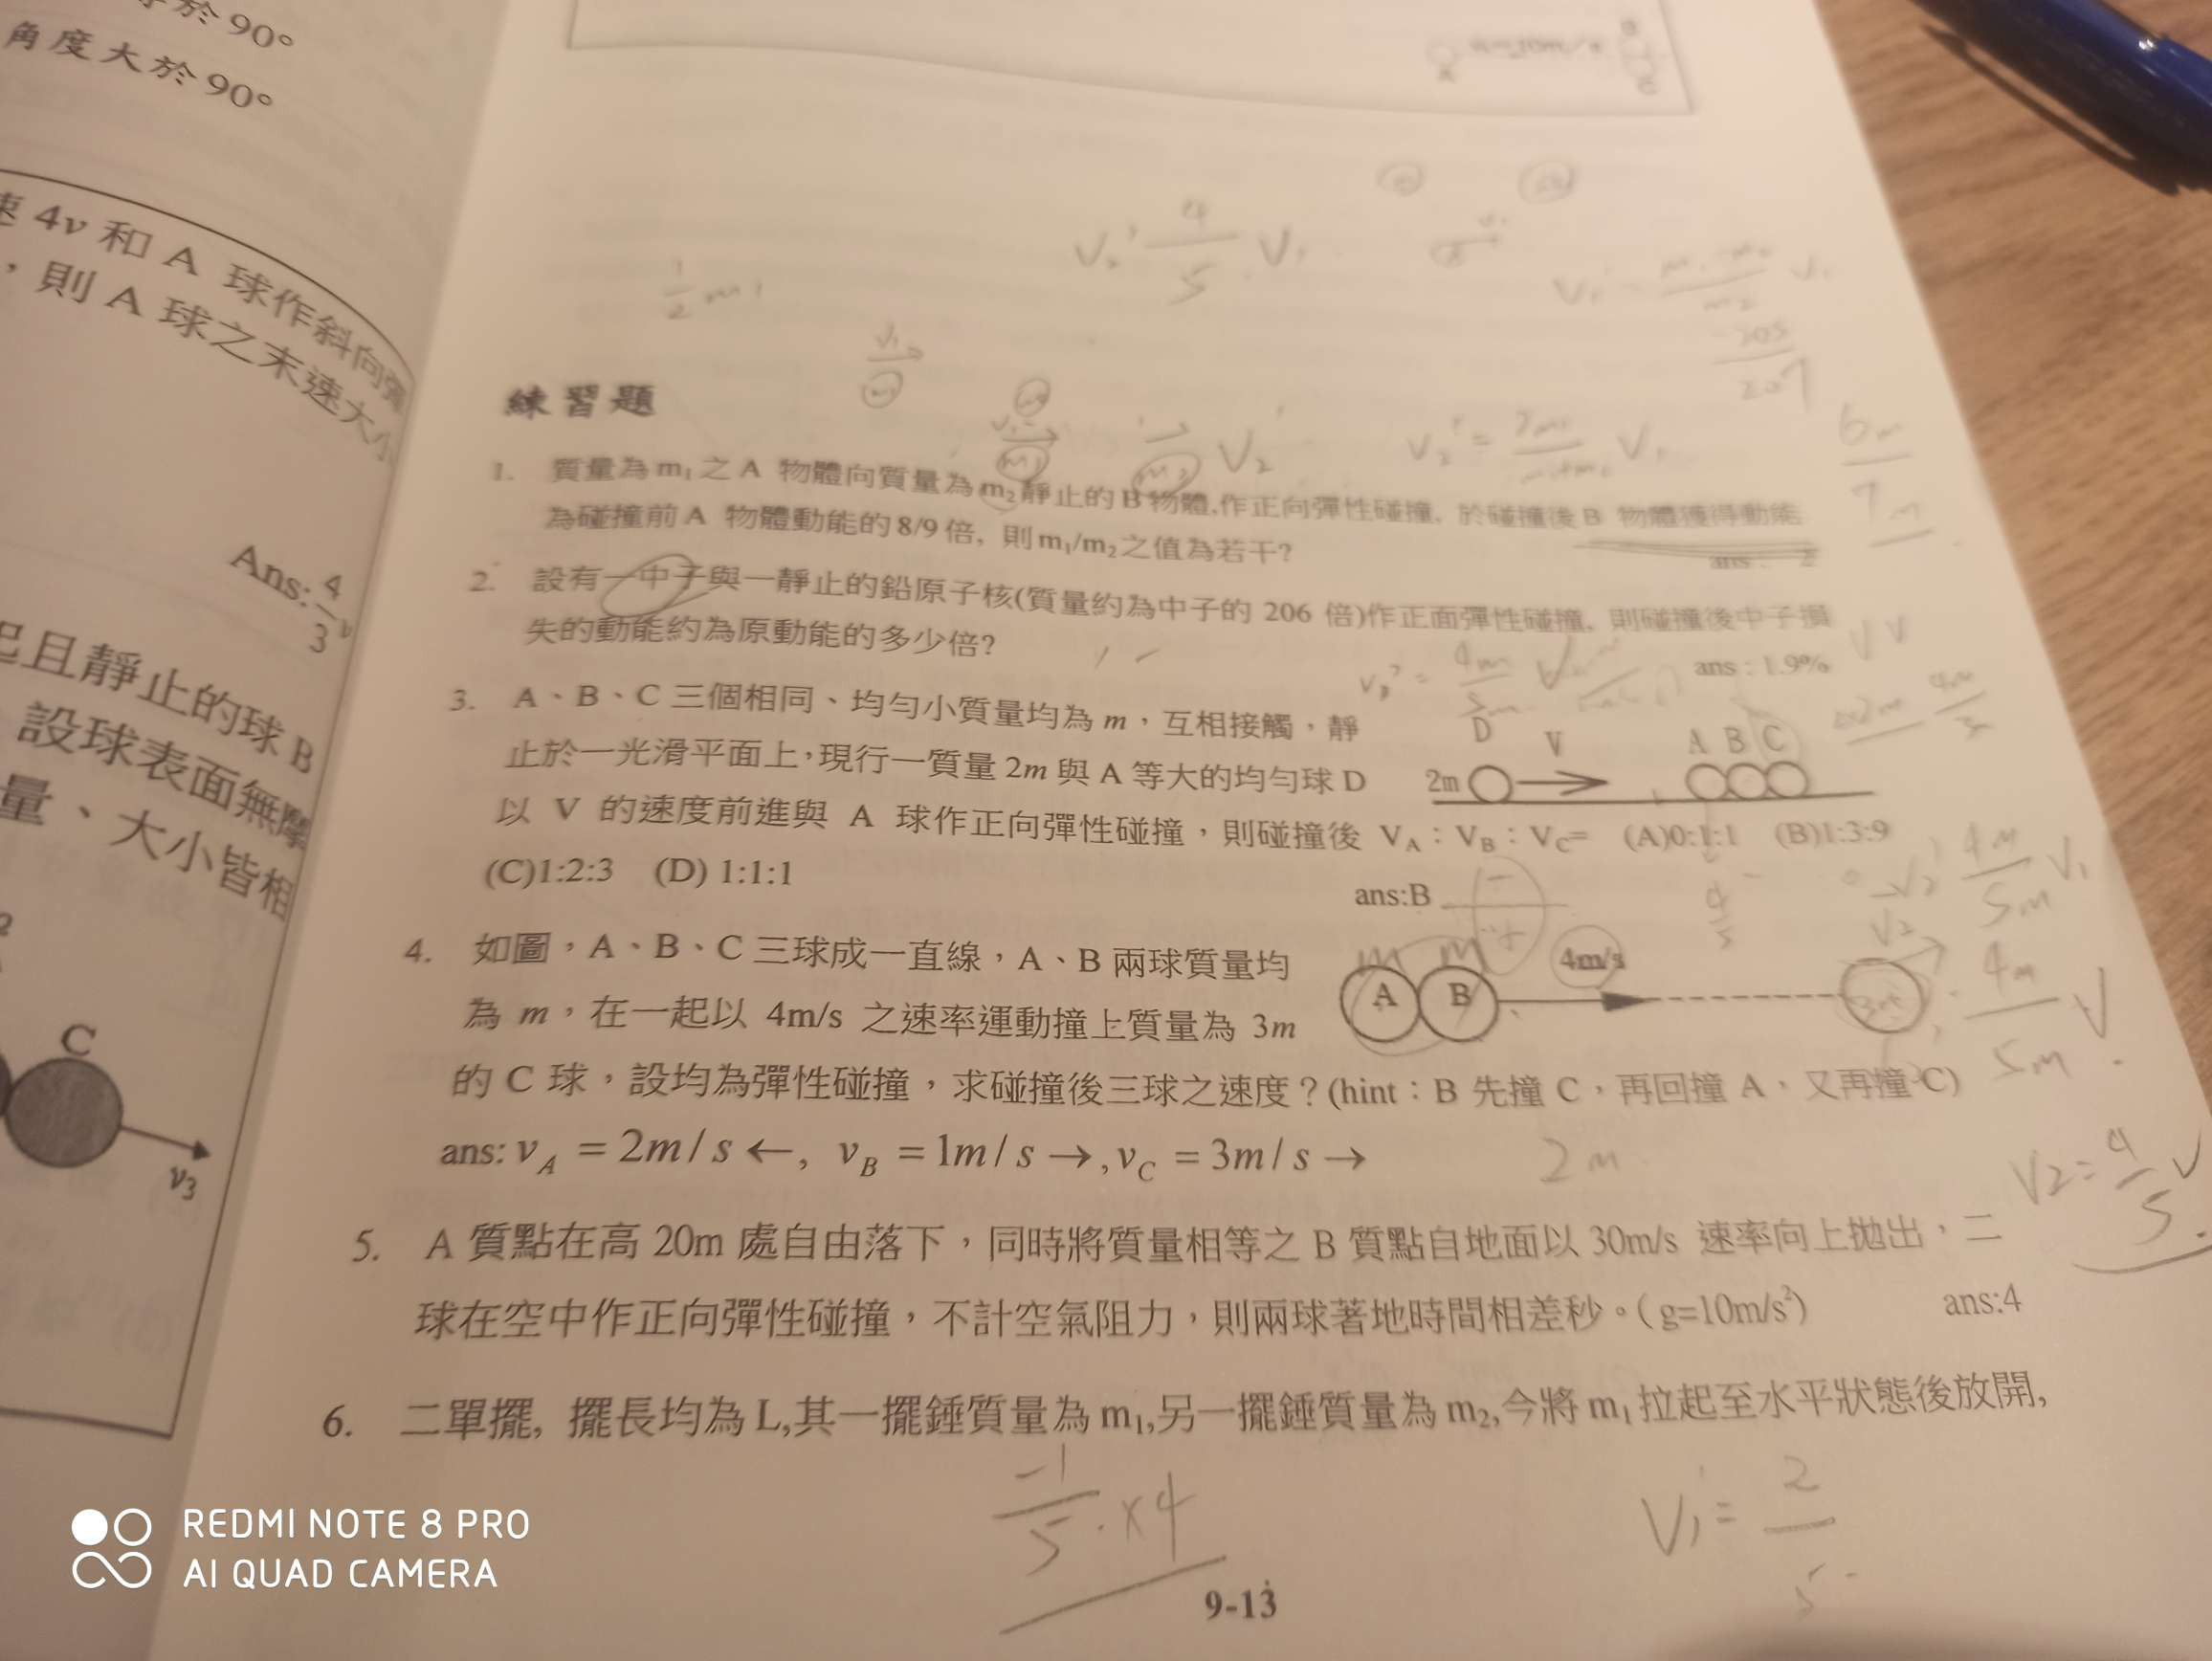 於90°
角度大於90°
速 4v 和 A 球作斜向彈
，則 A 球之末速大小
Ans: 4/3 v
起且靜止的球 B
設球表面無摩
量、大小皆相
C
v₃
1/2 m₁
V₂' 4/5 V₁
V₁
-205/207
練習題
V₂'
V₂' = 2m₁/m₁+m₂ V₁
6m/7m
1. 質量為 m₁ 之 A 物體向質量為 m₂ 靜止的 B 物體,作正向彈性碰撞, 於碰撞後 B 物體獲得動能
為碰撞前 A 物體動能的 8/9 倍, 則 m₁/m₂ 之值為若干?
ans : 2
2. 設有一中子與一靜止的鉛原子核(質量約為中子的 206 倍)作正面彈性碰撞, 則碰撞後中子損
失的動能約為原動能的多少倍?
ans : 1.9%
3. A、B、C 三個相同、均勻小質量均為 m，互相接觸，靜
止於一光滑平面上，現行一質量 2m 與 A 等大的均勻球 D
以 V 的速度前進與 A 球作正向彈性碰撞，則碰撞後 V_A：V_B：V_C= (A)0:1:1 (B)1:3:9
(C)1:2:3 (D) 1:1:1
ans:B
D V A B C
2m
4/5
4m/5m V₁
4. 如圖，A、B、C 三球成一直線，A、B 兩球質量均
為 m，在一起以 4m/s 之速率運動撞上質量為 3m
的 C 球，設均為彈性碰撞，求碰撞後三球之速度？(hint：B 先撞 C，再回撞 A，又再撞 C)
m m
A B 4m/s
V₂
4m/5m V
ans: v_A = 2m/s ←, v_B = 1m/s →, v_C = 3m/s →
2m
V₂=4/5 V
5. A 質點在高 20m 處自由落下，同時將質量相等之 B 質點自地面以 30m/s 速率向上拋出，二
球在空中作正向彈性碰撞，不計空氣阻力，則兩球著地時間相差秒。( g=10m/s²)
ans:4
6. 二單擺, 擺長均為 L,其一擺錘質量為 m₁,另一擺錘質量為 m₂,今將 m₁ 拉起至水平狀態後放開,
-1/5 ×4
V₁'= 2/5
9-13
REDMI NOTE 8 PRO
AI QUAD CAMERA